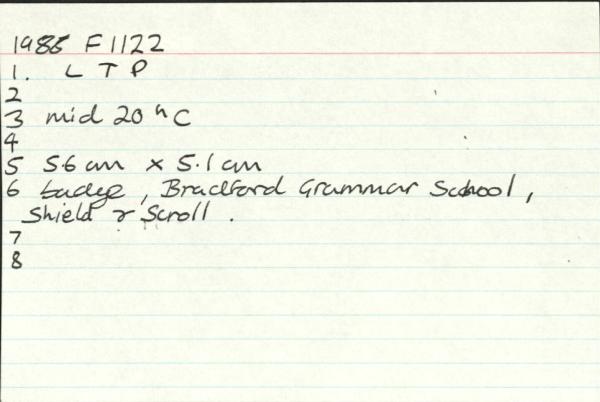 1986 F1122
1. L T P
2
3 mid 20th C
4
5 5.6 cm x 5.1 cm
6 badge, Bradford Grammar School,
Shield & Scroll.
7
8